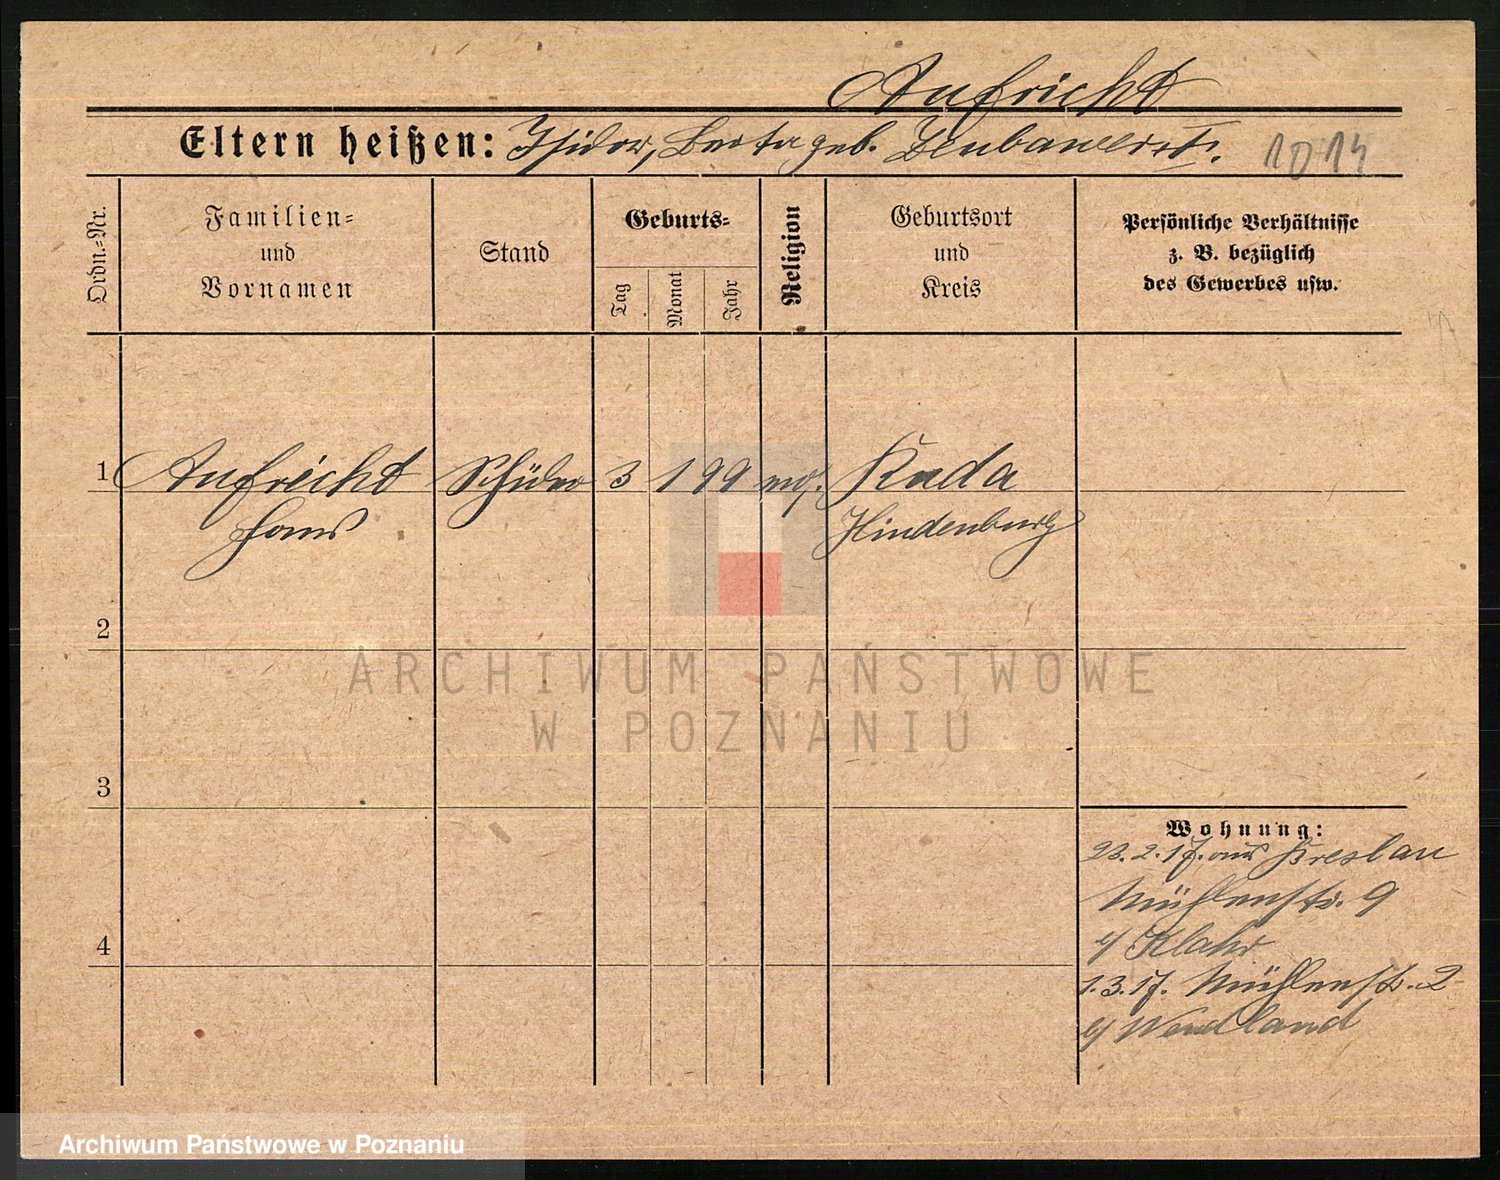 Aufricht
Eltern heißen: Isidor, Berta geb.
1014
Ordn.=Nr.
Familien=
und
Vornamen
Stand
Geburts=
Tag
Monat
Jahr
Religion
Geburtsort
und
Kreis
Persönliche Verhältnisse
z. B. bezüglich
des Gewerbes usw.
1 Aufricht Schüler 3 1 99 mos. Ruda
Hans Hindenburg
2
ARCHIWUM PAŃSTWOWE
W POZNANIU
3
Wohnung:
23.2.17. aus Breslau
Mühlenstr. 9
b/ Klahr
4
1.3.17. Mühlenstr. 2
b/ Wendland
Archiwum Państwowe w Poznaniu